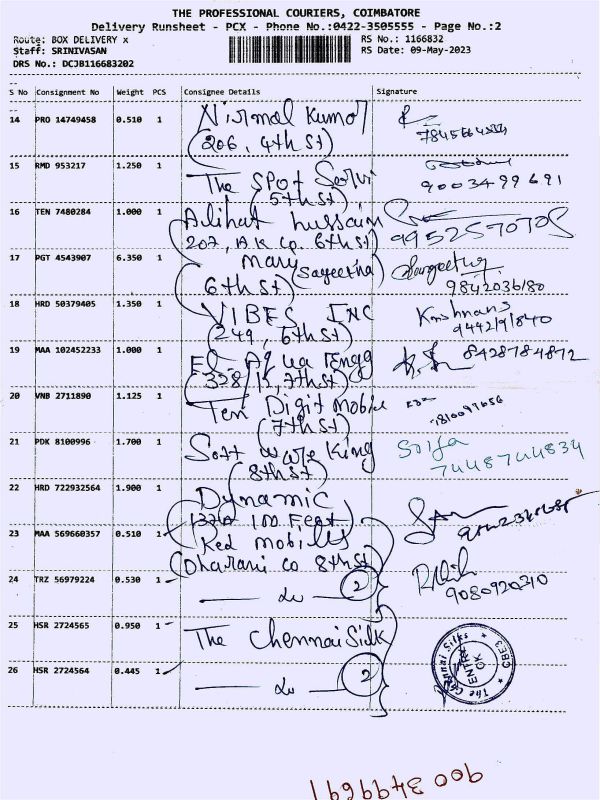 THE PROFESSIONAL COURIERS, COIMBATORE
Delivery Runsheet - PCX - Phone No.:0422-3505555 - Page No.:2
Route: BOX DELIVERY x RS No.: 1166832
Staff: SRINIVASAN RS Date: 09-May-2023
DRS No.: DCJB116683202
S No Consignment No Weight PCS Consignee Details Signature
14 PRO 14749458 0.510 1 Nirmal Kumar
(206, 4th St)
15 RMD 953217 1.250 1 The Spot Servi
(5th St) 9003499691
16 TEN 7480284 1.000 1 Alihat hussain
207, 6th St) 9952570705
17 PGT 4543907 6.350 1 Mary (Sageetha) Sangeetha
6th St) 9842036180
18 HRD 50379405 1.350 1 VIBES INC Krishnan
(249, 6th St) 9442191840
19 MAA 102452233 1.000 1 Aqua Engg 8428784872
7th St)
20 VNB 2711890 1.125 1 Ten Digit Mobile
(7th St) 7810097656
21 PDK 8100996 1.700 1 Soft ware King
(8th St) 7448744834
22 HRD 722932564 1.900 1 Dynamic
100 Feet)
23 MAA 569660357 0.510 1 Red Mobiles
Dharani Co 8th St)
24 TRZ 56979224 0.530 1 2 9080920210
25 HSR 2724565 0.950 1 The Chennai Silk
26 HSR 2724564 0.445 1 2
The Chennai Silks CBE3
ENTRY
OK
9003499691